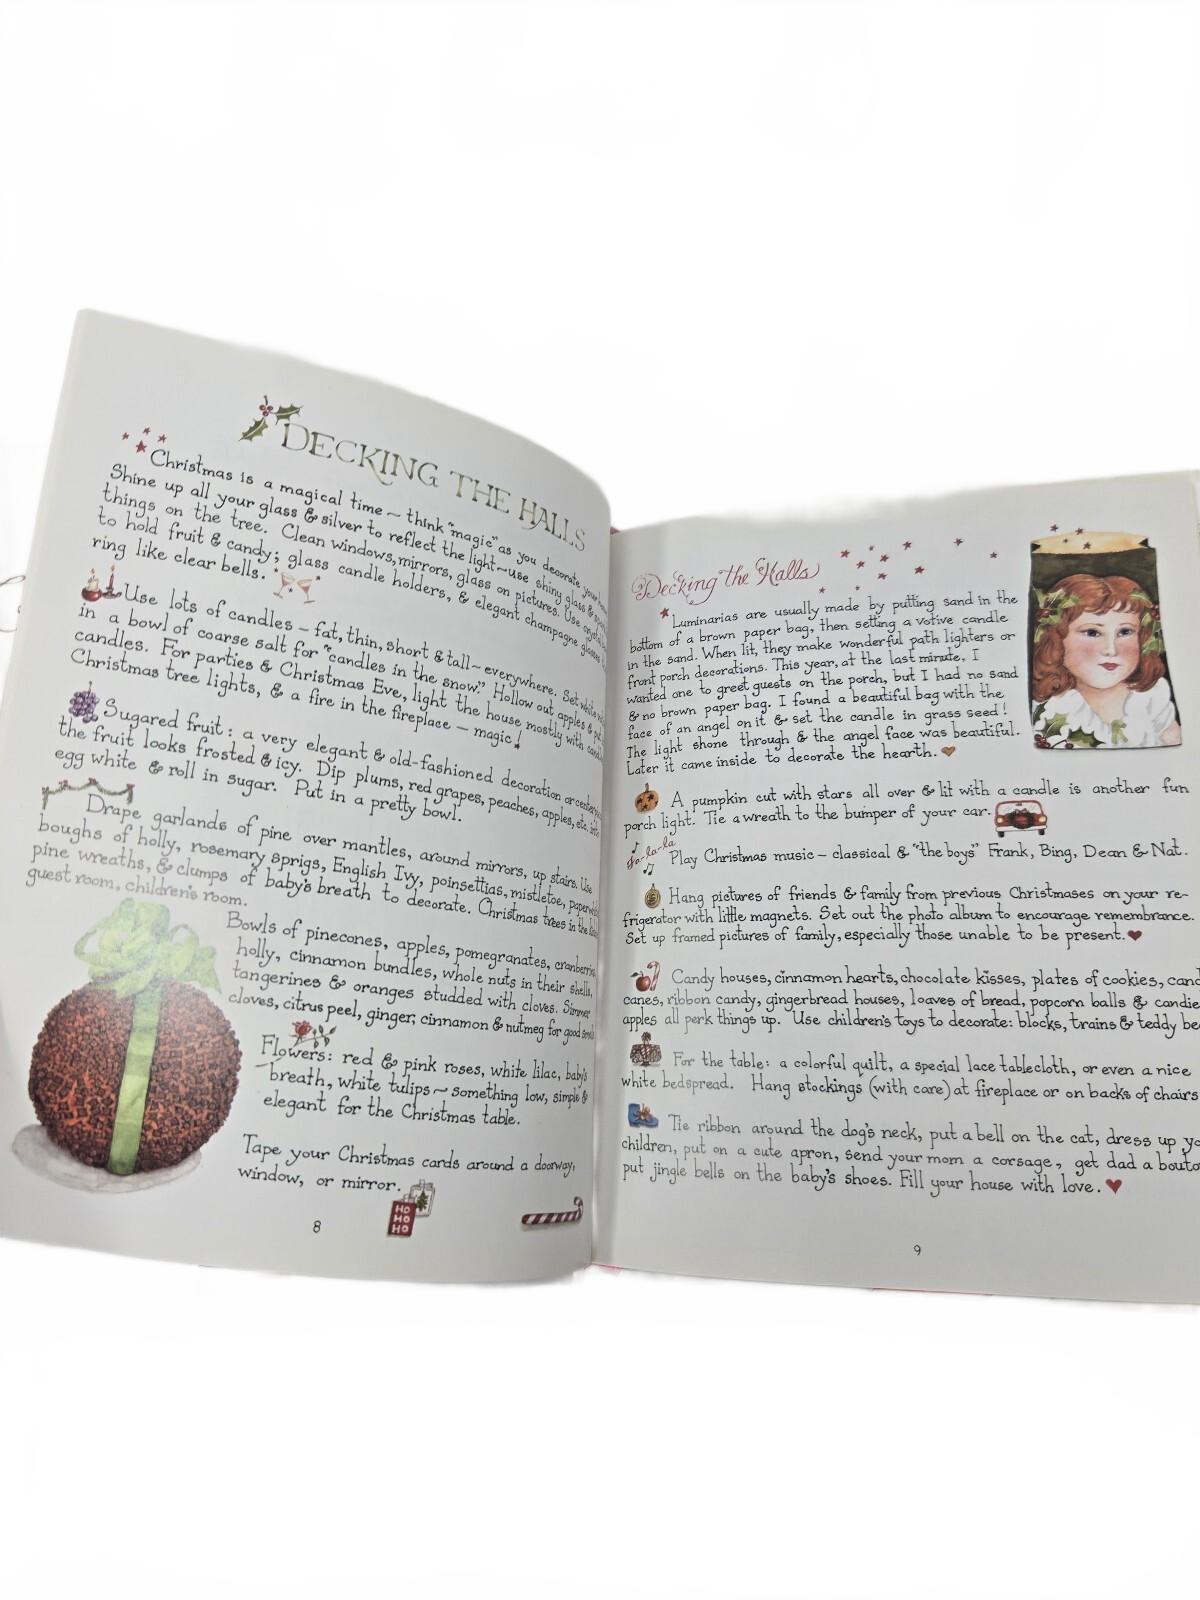 DECKING THE HALLS
Christmas is a magical time ~ think "magic" as you decorate your
Shine up all your glass & silver to reflect the light ~ use shiny glass &
things on the tree. Clean windows, mirrors, glass on pictures. Use crystal
to hold fruit & candy; glass candle holders, & elegant champagne glasses
ring like clear bells.
Use lots of candles – fat, thin, short & tall ~ everywhere. Set white
in a bowl of coarse salt for "candles in the snow." Hollow out apples & put
candles. For parties & Christmas Eve, light the house mostly with
Christmas tree lights, & a fire in the fireplace — magic!
Sugared fruit: a very elegant & old-fashioned decoration or
the fruit looks frosted & icy. Dip plums, red grapes, peaches, apples, etc. into
egg white & roll in sugar. Put in a pretty bowl.
Drape garlands of pine over mantles, around mirrors, up stairs. Use
boughs of holly, rosemary sprigs, English Ivy, poinsettias, mistletoe,
pine wreaths, & clumps of baby's breath to decorate. Christmas trees in the
guest room, children's room.
Bowls of pinecones, apples, pomegranates, cranberries,
holly, cinnamon bundles, whole nuts in their shells,
tangerines & oranges studded with cloves. Simmer
cloves, citrus peel, ginger, cinnamon & nutmeg for good smells
Flowers: red & pink roses, white lilac, baby's
breath, white tulips ~ something low, simple &
elegant for the Christmas table.
Tape your Christmas cards around a doorway,
window, or mirror.
HO
HO
HO
8
Decking the Halls
Luminarias are usually made by putting sand in the
bottom of a brown paper bag, then setting a votive candle
in the sand. When lit, they make wonderful path lighters or
front porch decorations. This year, at the last minute, I
wanted one to greet guests on the porch, but I had no sand
& no brown paper bag. I found a beautiful bag with the
face of an angel on it & set the candle in grass seed!
The light shone through & the angel face was beautiful.
Later it came inside to decorate the hearth.
A pumpkin cut with stars all over & lit with a candle is another fun
porch light. Tie a wreath to the bumper of your car.
fa-la-la
Play Christmas music – classical & "the boys" Frank, Bing, Dean & Nat.
Hang pictures of friends & family from previous Christmases on your re-
frigerator with little magnets. Set out the photo album to encourage remembrance.
Set up framed pictures of family, especially those unable to be present.
Candy houses, cinnamon hearts, chocolate kisses, plates of cookies,
canes, ribbon candy, gingerbread houses, loaves of bread, popcorn balls &
apples all perk things up. Use children's toys to decorate: blocks, trains & teddy
For the table: a colorful quilt, a special lace tablecloth, or even a nice
white bedspread. Hang stockings (with care) at fireplace or on backs of chairs
Tie ribbon around the dog's neck, put a bell on the cat, dress up
children, put on a cute apron, send your mom a corsage, get dad a
put jingle bells on the baby's shoes. Fill your house with love.
9